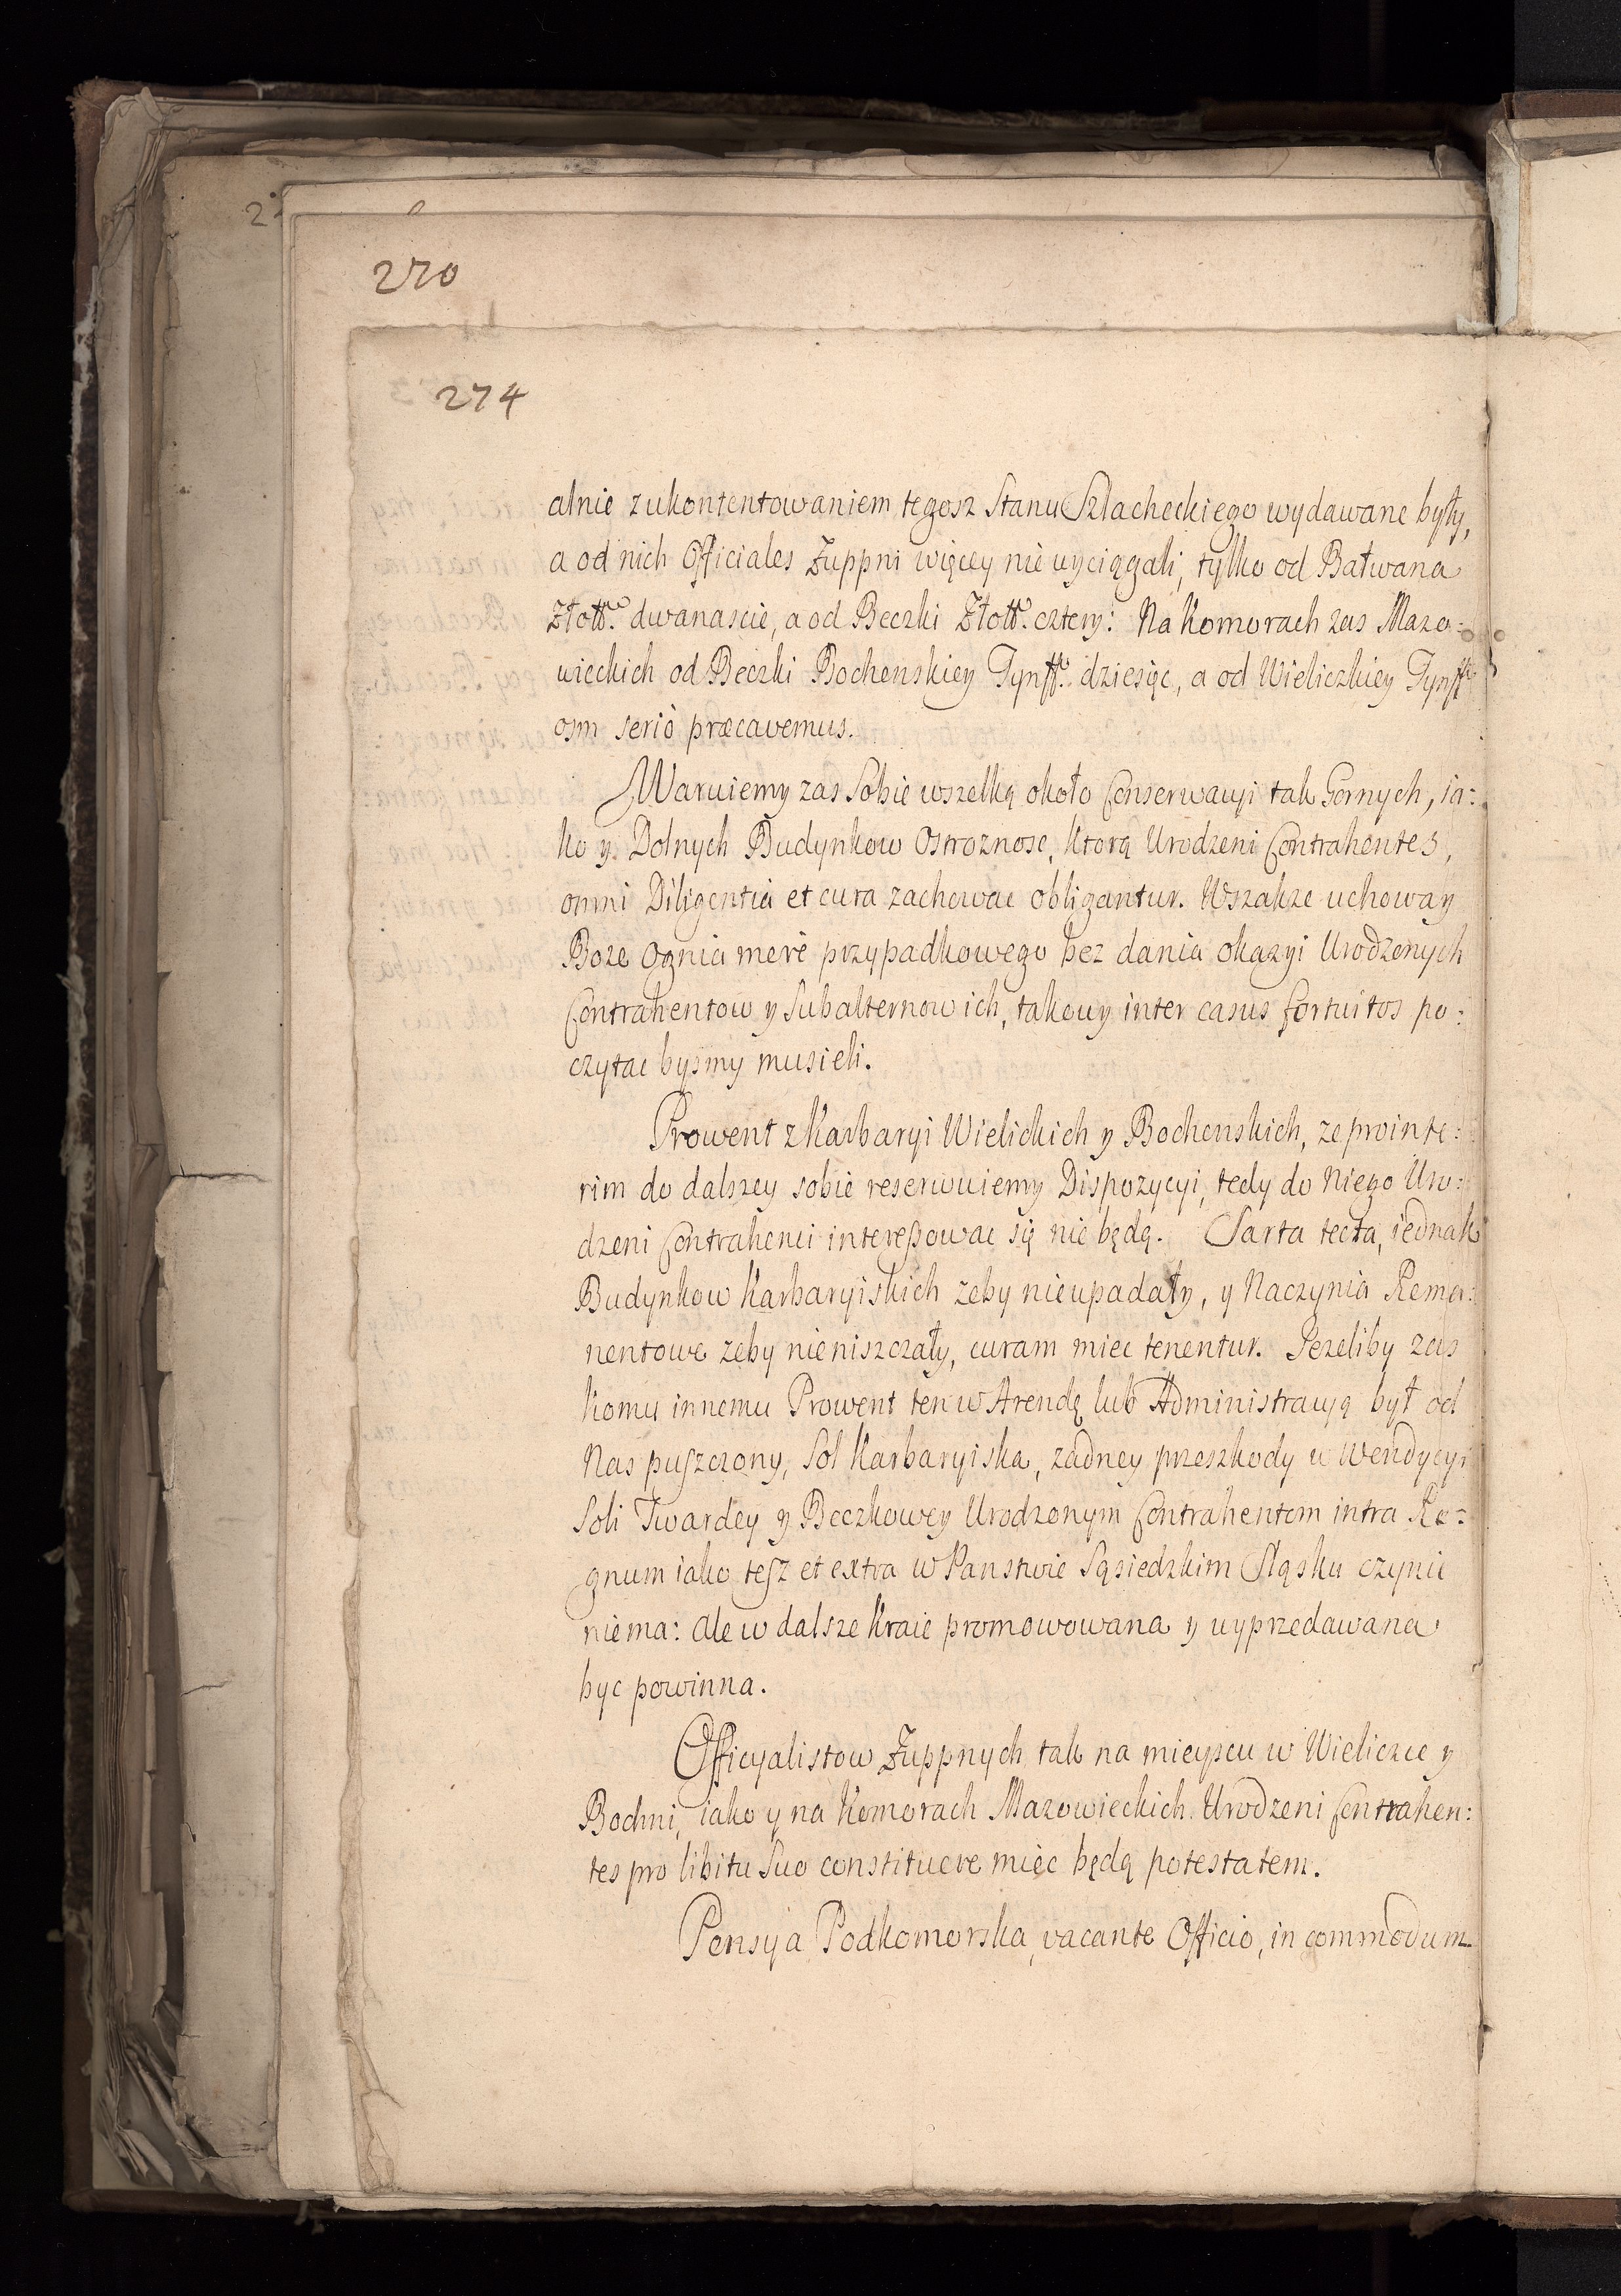 270
274
alnie z ukontentowaniem tegosz Stanu Szlacheckiego wydawane były,
a od nich Officiales Zuppni więcey nie wyciągali, tylko od Bałwana
Złott. dwanascie, a od Beczki Złott. cztery: Na Komorach zas Mazo:
wieckich od Beczki Bochenskiey Tynff. dziesięc, a od Wieliczkiey Tynff.
osm serió præcavemus.
Waruiemy zas Sobie wszelką około Conserwacyi tak Gornych, ia:
ko y Dolnych Budynkow Ostroznosc, ktorą Urodzeni Contrahentes,
omni Diligentia et cura zachowac obligantur. Wszakze uchoway
Boze Ognia merè przypadkowego bez dania okazyi Urodzonych
Contrahentow y Subalternow ich, takowy inter casus fortuitos po:
czytac bysmy musieli.
Prowent z Karbaryi Wielickich y Bochenskich, ze prointe:
rim do dalszey sobie reserwuiemy Dispozycyi, tedy do Niego Uro:
dzeni Contrahenci interessowac się nie będą. Sarta tecta, iednak
Budynkow Karbaryiskich zeby nieupadały, y Naczynia Rema:
nentowe zeby nieniszczały, curam miec tenentur. Jezeliby zas
komu innemu Prowent ten w Arendę lub Administracyą był od
Nas puszczony, Sol Karbaryiska, zadney przeszkody w Wendycyi
Soli Twardey y Beczkowey Urodzonym Contrahentom intra Re:
gnum iako tesz et extra w Panstwie Sąsiedzkim Sląsku czynic
niema: ale w dalsze Kraie promowowana y wyprzedawana
byc powinna.
Officyalistow Zuppnych tak na mieyscu w Wieliczce y
Bochni, iako y na Komorach Mazowieckich Urodzeni Contrahen:
tes pro libitu Suo constituere miec będą potestatem.
Pensya Podkomorska, vacante Officio, in commodum